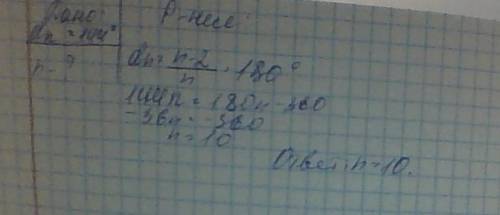 Дано:
Р-ние:
αn = 144°
n - ?
αn = n-2/n · 180°
144n = 180n - 360
-36n = -360
n = 10
Ответ: n = 10.